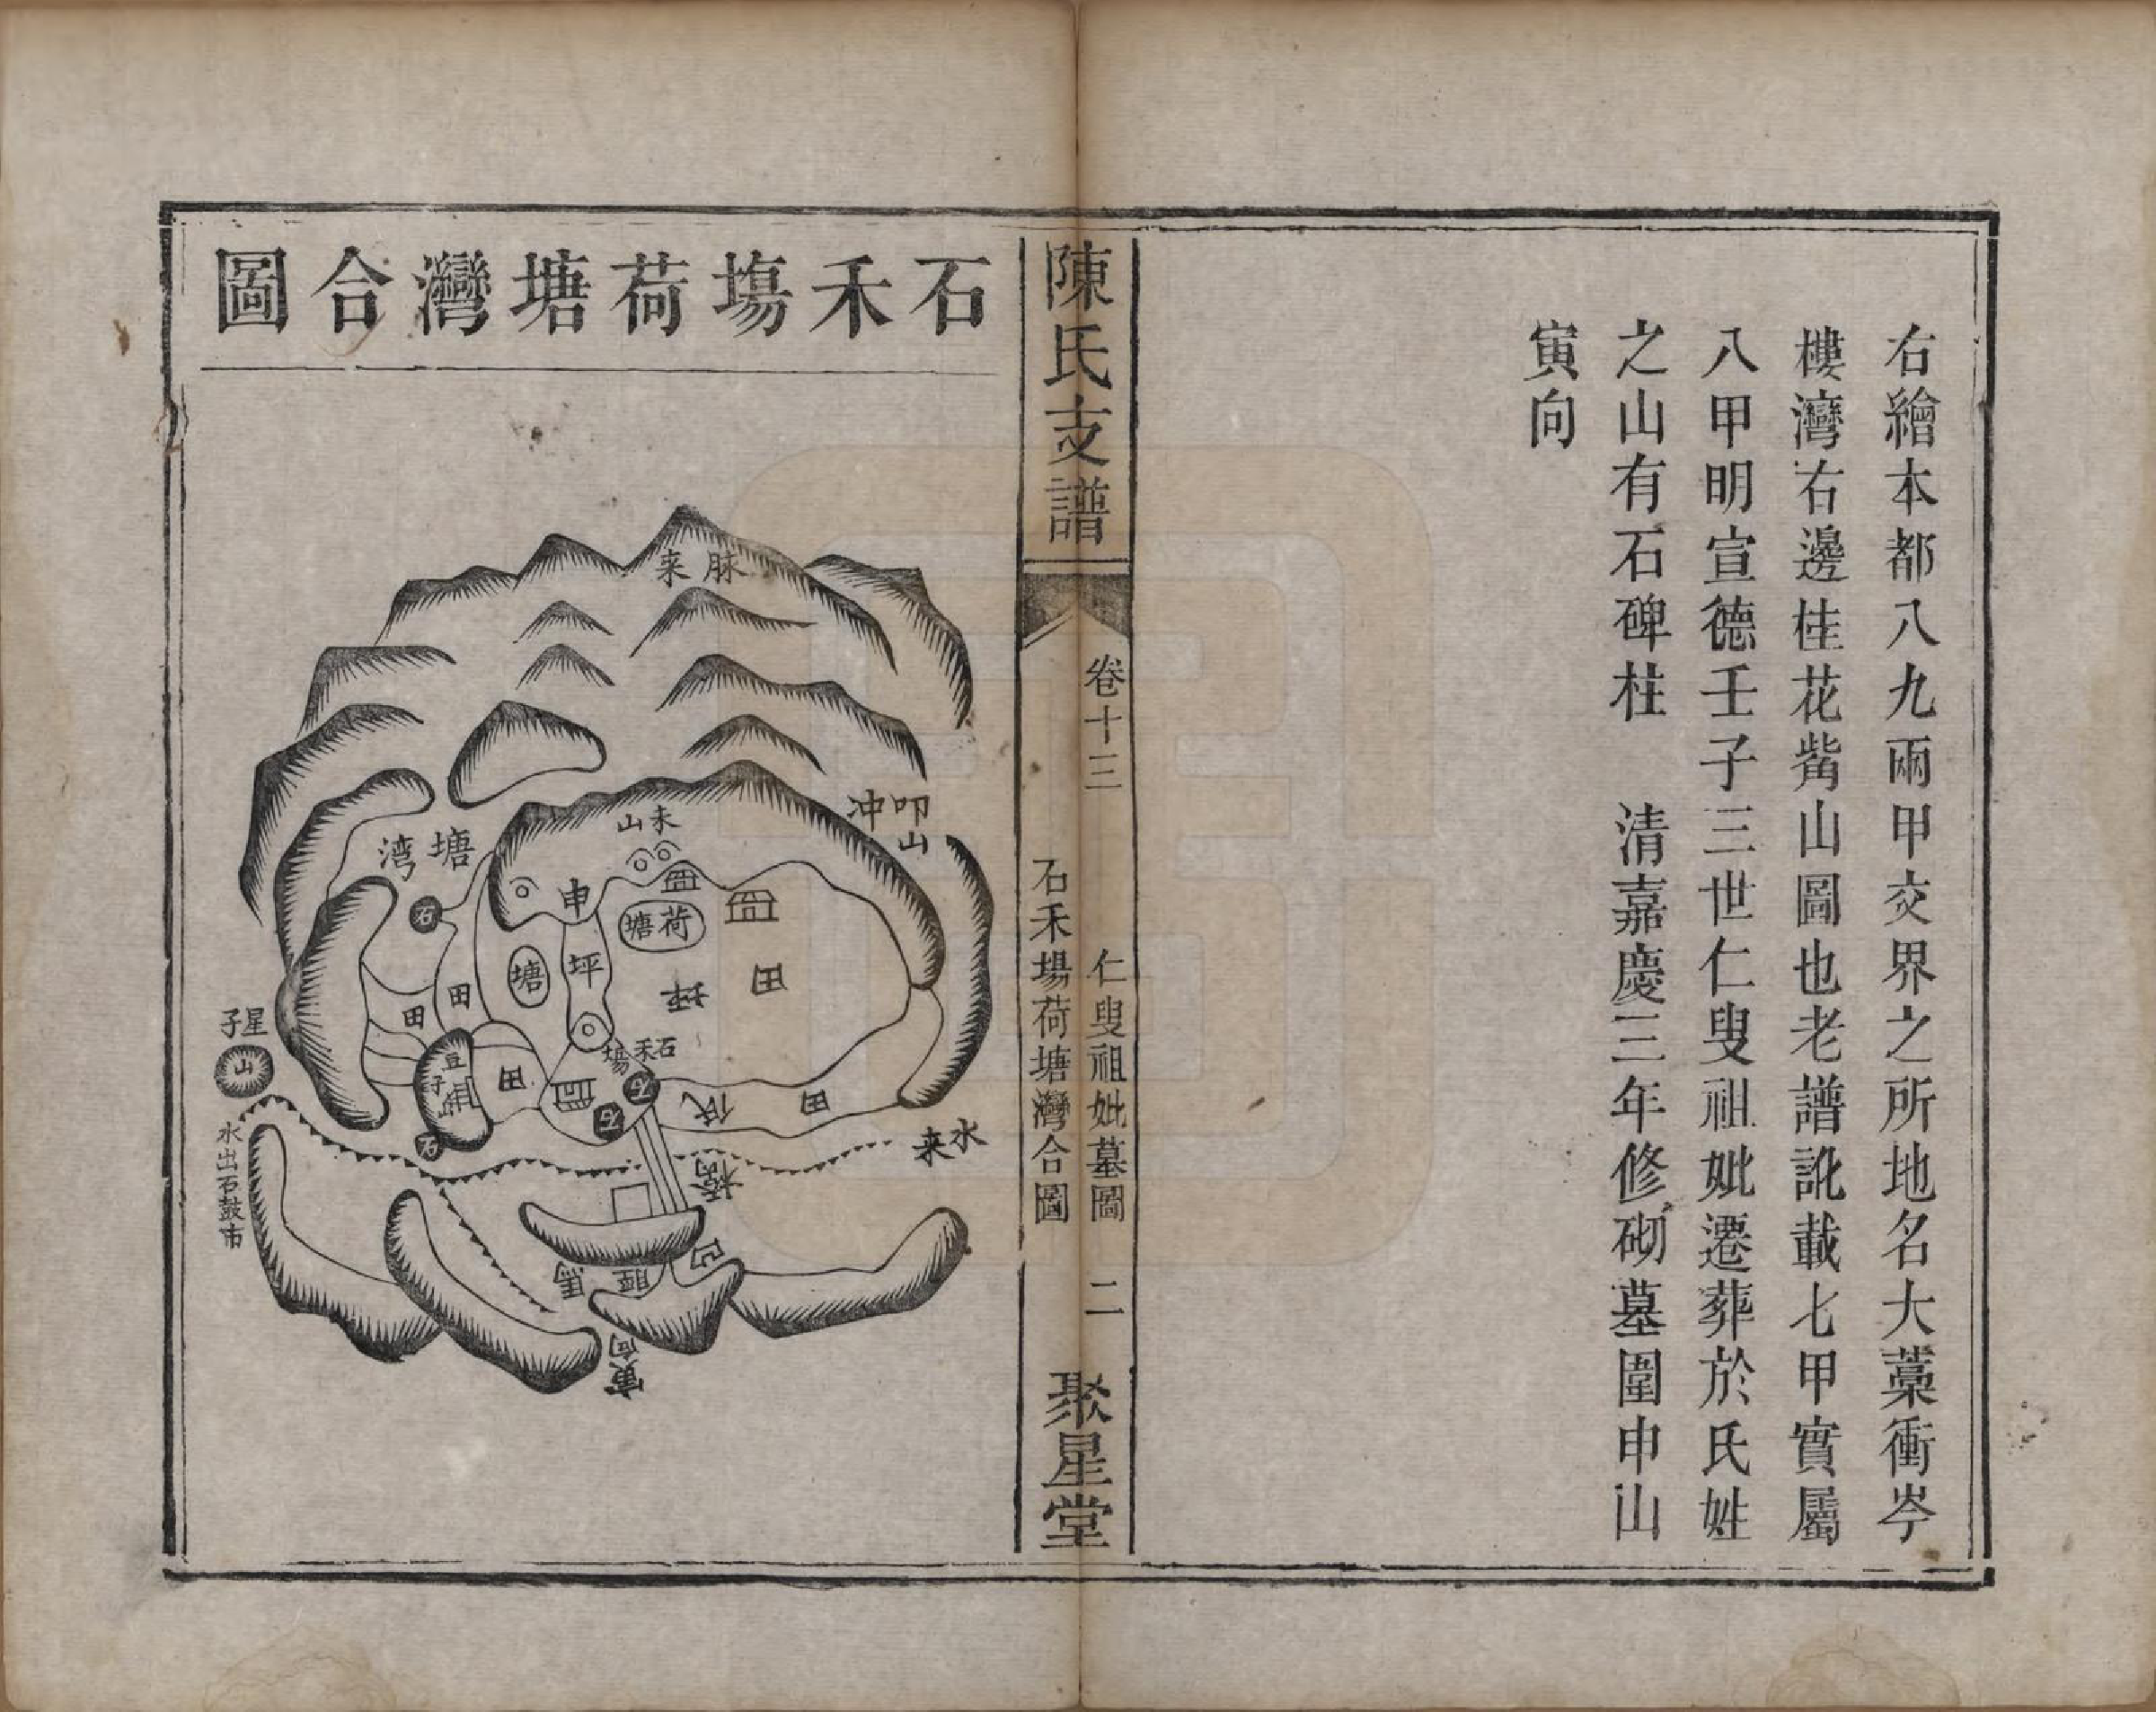 右繪本都八九兩甲交界之所地名大藁衝岑
樓灣右邊桂花觜山圖也老譜訛載七甲實屬
八甲明宣德壬子三世仁叟祖妣遷葬於氏姓
之山有石碑柱　清嘉慶三年修砌墓圍申山
寅向
陳氏支譜
卷十三
仁叟祖妣墓圖
石禾場荷塘灣合圖
二
聚星堂
石禾塲荷塘灣合圖
脉来
叩山冲
未山
塘湾
申
石
荷塘
塘
坪
坪
田
田
田
田
田
石禾塲
石
石
石
豆子
星子
山
水来
水出石鼓市
橋
馬
寅向